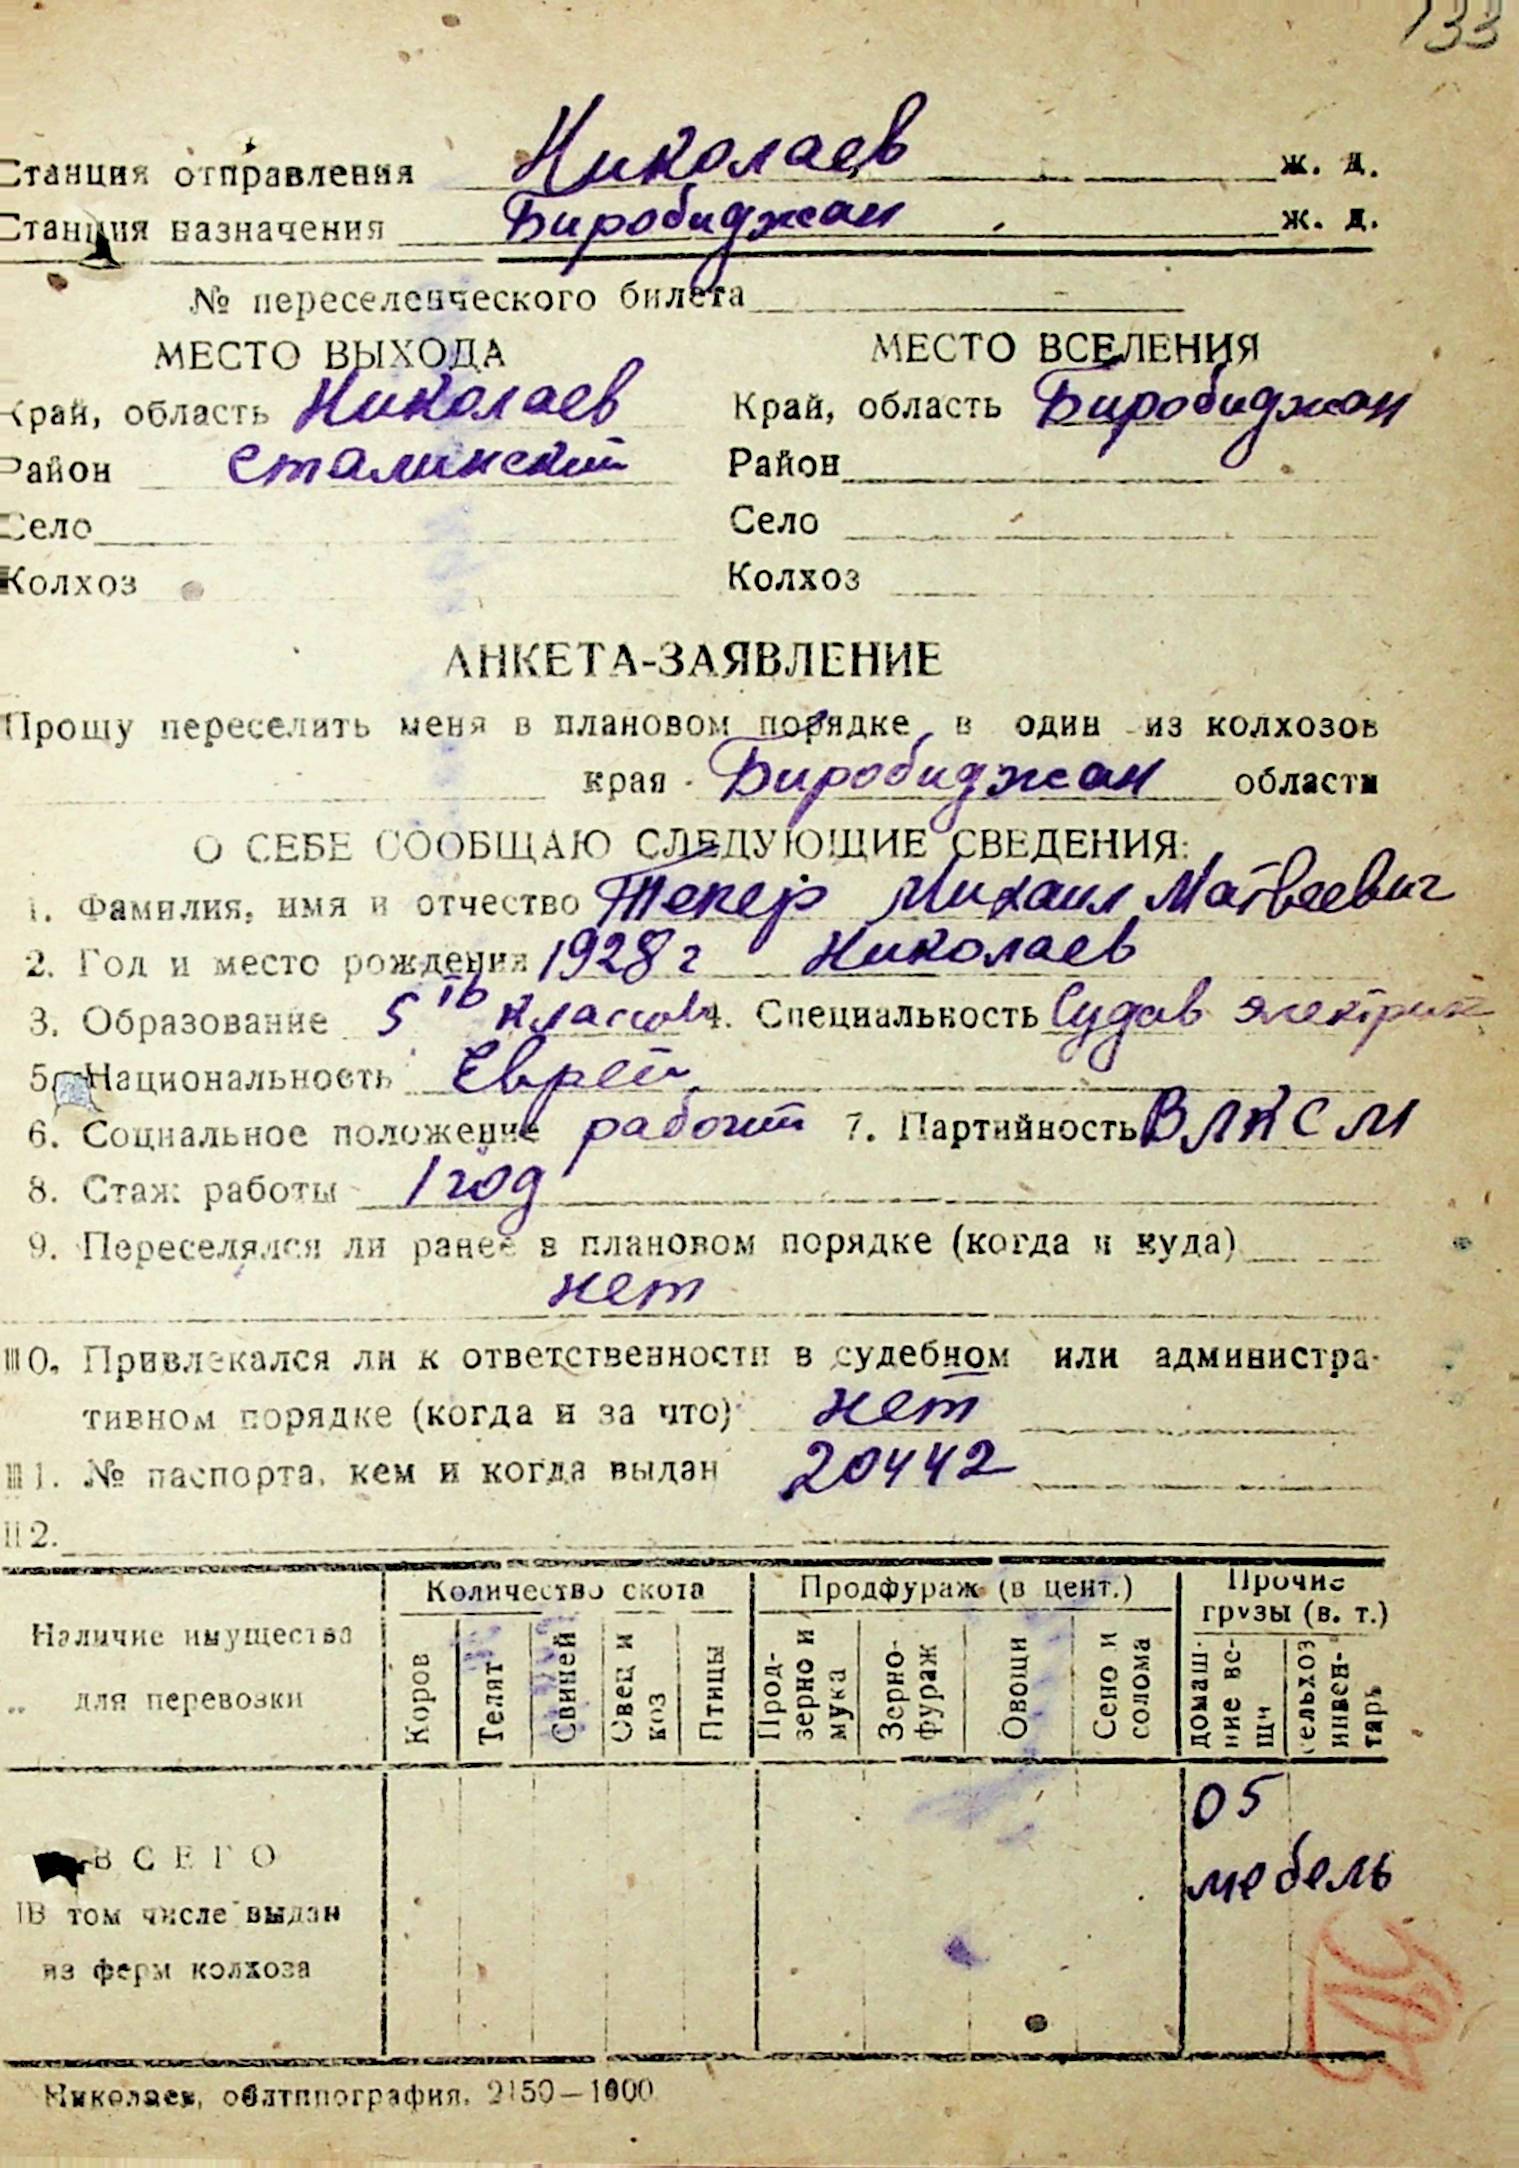 133
Станция отправления Николаев ж. д.
Станция назначения Биробиджан ж. д.
№ переселенческого билета
МЕСТО ВЫХОДА МЕСТО ВСЕЛЕНИЯ
Край, область Николаев Край, область Биробиджан
Район Сталинский Район
Село Село
Колхоз Колхоз
АНКЕТА-ЗАЯВЛЕНИЕ
Прошу переселить меня в плановом порядке в один из колхозов
края Биробиджан области
О СЕБЕ СООБЩАЮ СЛЕДУЮЩИЕ СВЕДЕНИЯ:
1. Фамилия, имя и отчество Текер Михаил Матвеевич
2. Год и место рождения 1928 г Николаев
3. Образование 5ть классов 4. Специальность Судов электрик
5. Национальность Еврей
6. Социальное положение рабочий 7. Партийность ВЛКСМ
8. Стаж работы 1 год
9. Переселялся ли ранее в плановом порядке (когда и куда)
нет
10. Привлекался ли к ответственности в судебном или администра-
тивном порядке (когда и за что) нет
11. № паспорта, кем и когда выдан 20442
12.
Наличие имущества для перевозки
Количество скота Продфураж (в цент.) Прочие грузы (в. т.)
Коров Телят Свиней Свец и коз Птицы Прод-зерно и мука Зерно-фураж Овощи Сено и солома домаш-ние ве-щи сельхоз инвен-тарь
05
ВСЕГО мебель
В том числе выдан
из ферм колхоза
Николаев, облтипография. 2150—1000